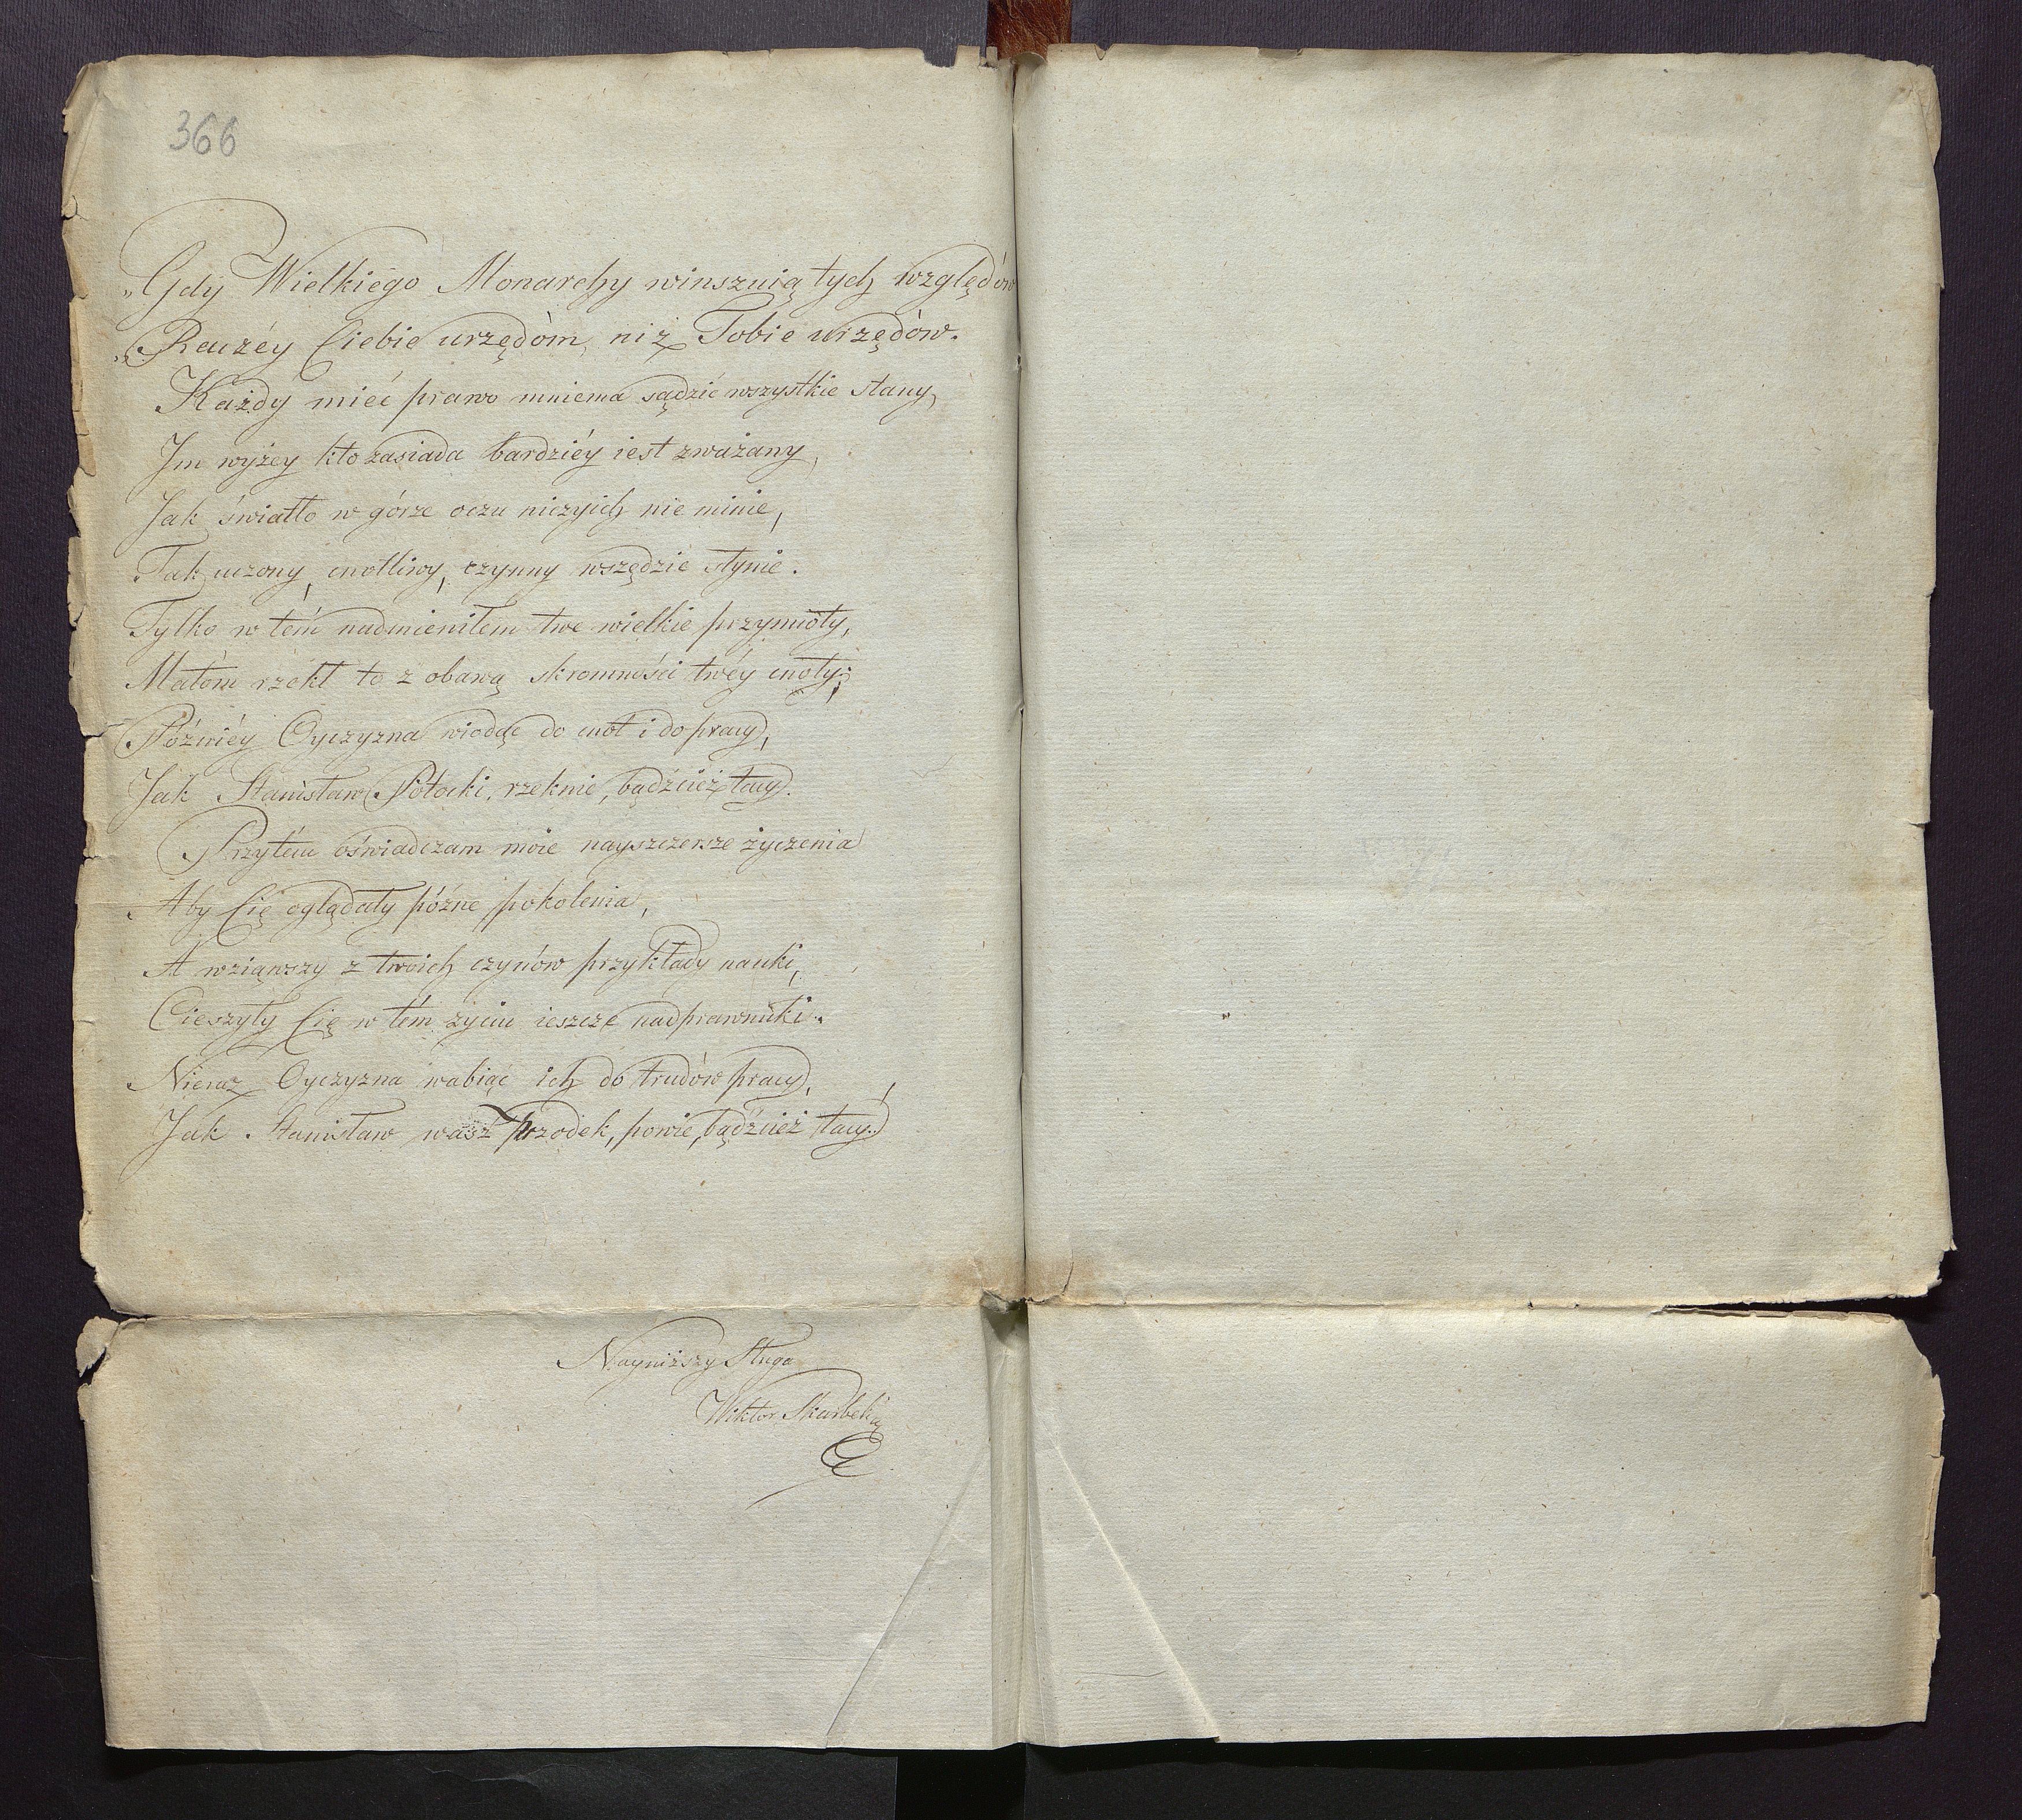 366
„Gdy Wielkiego Monarchy winszuią tych względów
„Raczéy Ciebie urzędóm, niż Tobie urzędów.
Każdy mieć prawo mniema sądzić wszystkie stany,
Im wyżey kto zasiada bardziéy iest zważany,
Jak światło w górze oczu niczyich nie minie,
Tak uczony, cnotliwy, czynny wszędzie słynie.
Tylko w tém nadmieniłem twe wielkie przymioty,
Małom rzekł to z obawą skromności twéy cnoty;
Późniéy Oyczyzna wiodąc do cnót i do pracy,
Jak Stanisław Potocki, rzeknie, bądźcież tacy.
Przytém oświadczam moie nayszczersze życzenia
Aby Cię oglądały późne pokolenia,
A wziąwszy z twoich czynów przykłady nauki,
Cieszyły Cię w tém życiu ieszcze nadprawnuki.
Nieraz Oyczyzna wabiąc ich do trudów pracy,
Jak Stanisław wasz Przodek, powie, bądźcież tacy.
Nayniższy Sługa
Wiktor Skarbek